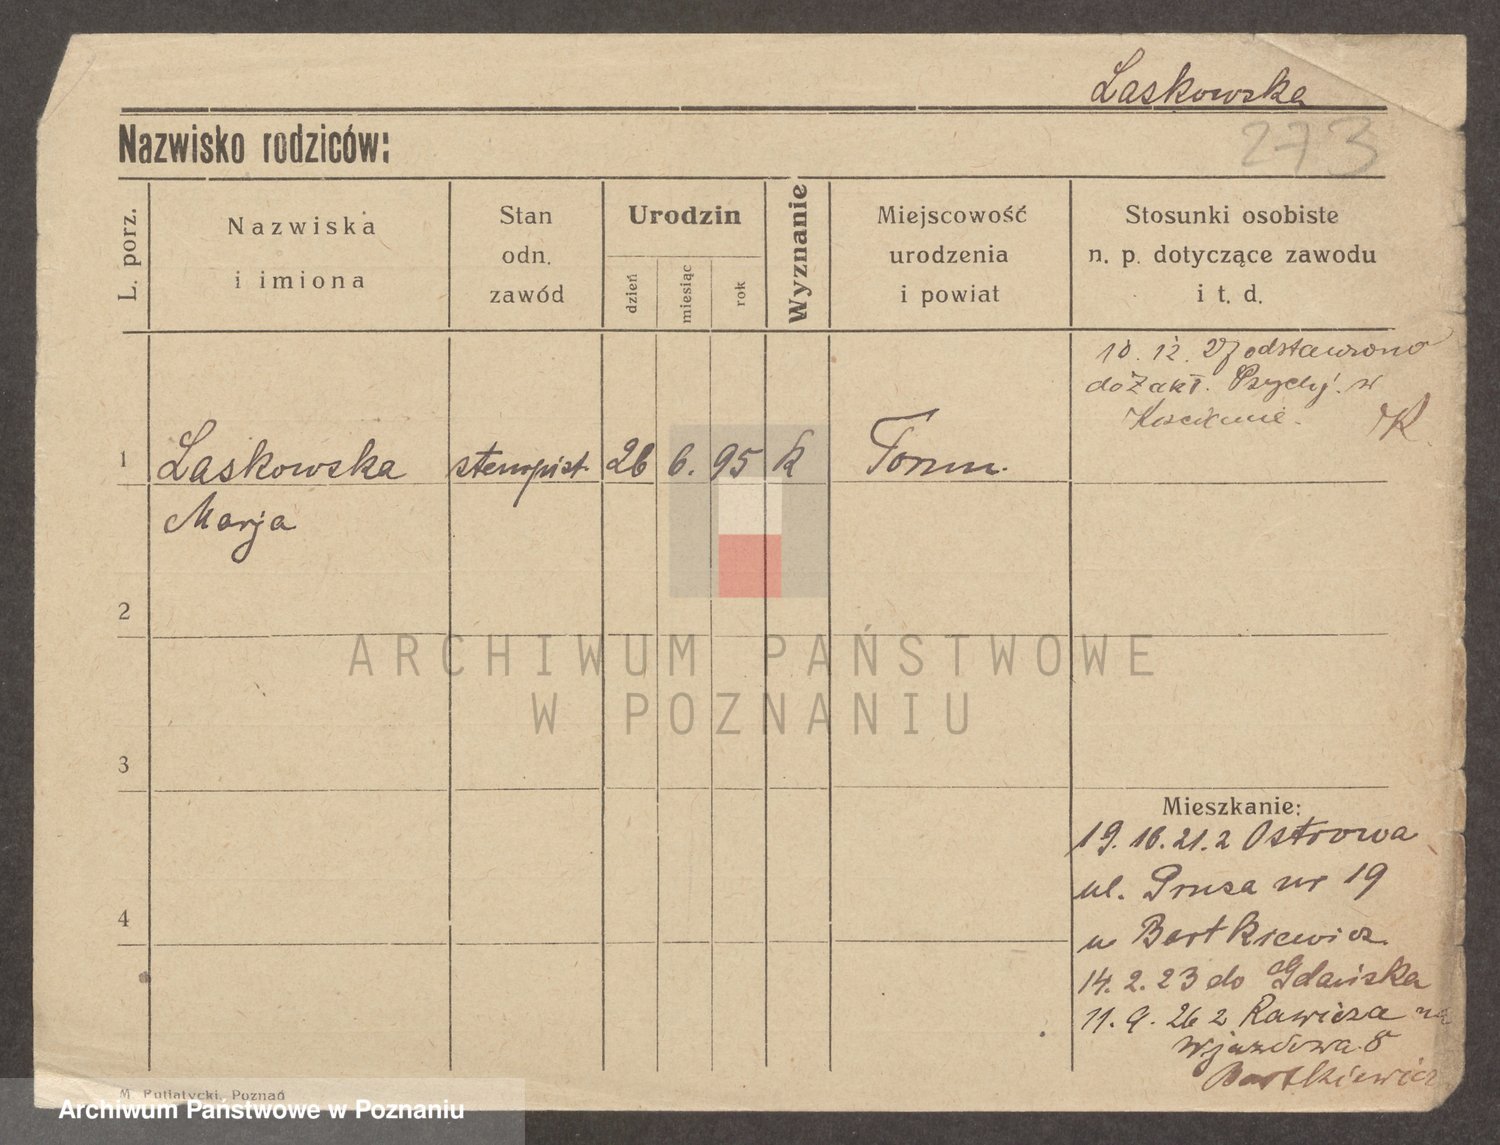 Laskowska
Nazwisko rodziców:
273
L. porz.
Nazwiska
i imiona
Stan
odn.
zawód
Urodzin
dzień
miesiąc
rok
Wyznanie
Miejscowość
urodzenia
i powiat
Stosunki osobiste
n. p. dotyczące zawodu
i t. d.
10. 12. 27 odstawiono
do Zakł. Psych. w
Kościanie.
1 Laskowska stenopist. 26 6. 95 k Toruń.
Marja
2
3
4
Mieszkanie:
19. 10. 21. z Ostrowa
ul. Prusa nr 19
u Bartkiewicz.
14. 2. 23 do Gdańska
11. 9. 26 z Rawicza na
Wjazdowa 8
Bartkiewicz
M. Putiatycki, Poznań
ARCHIWUM PAŃSTWOWE
W POZNANIU
Archiwum Państwowe w Poznaniu